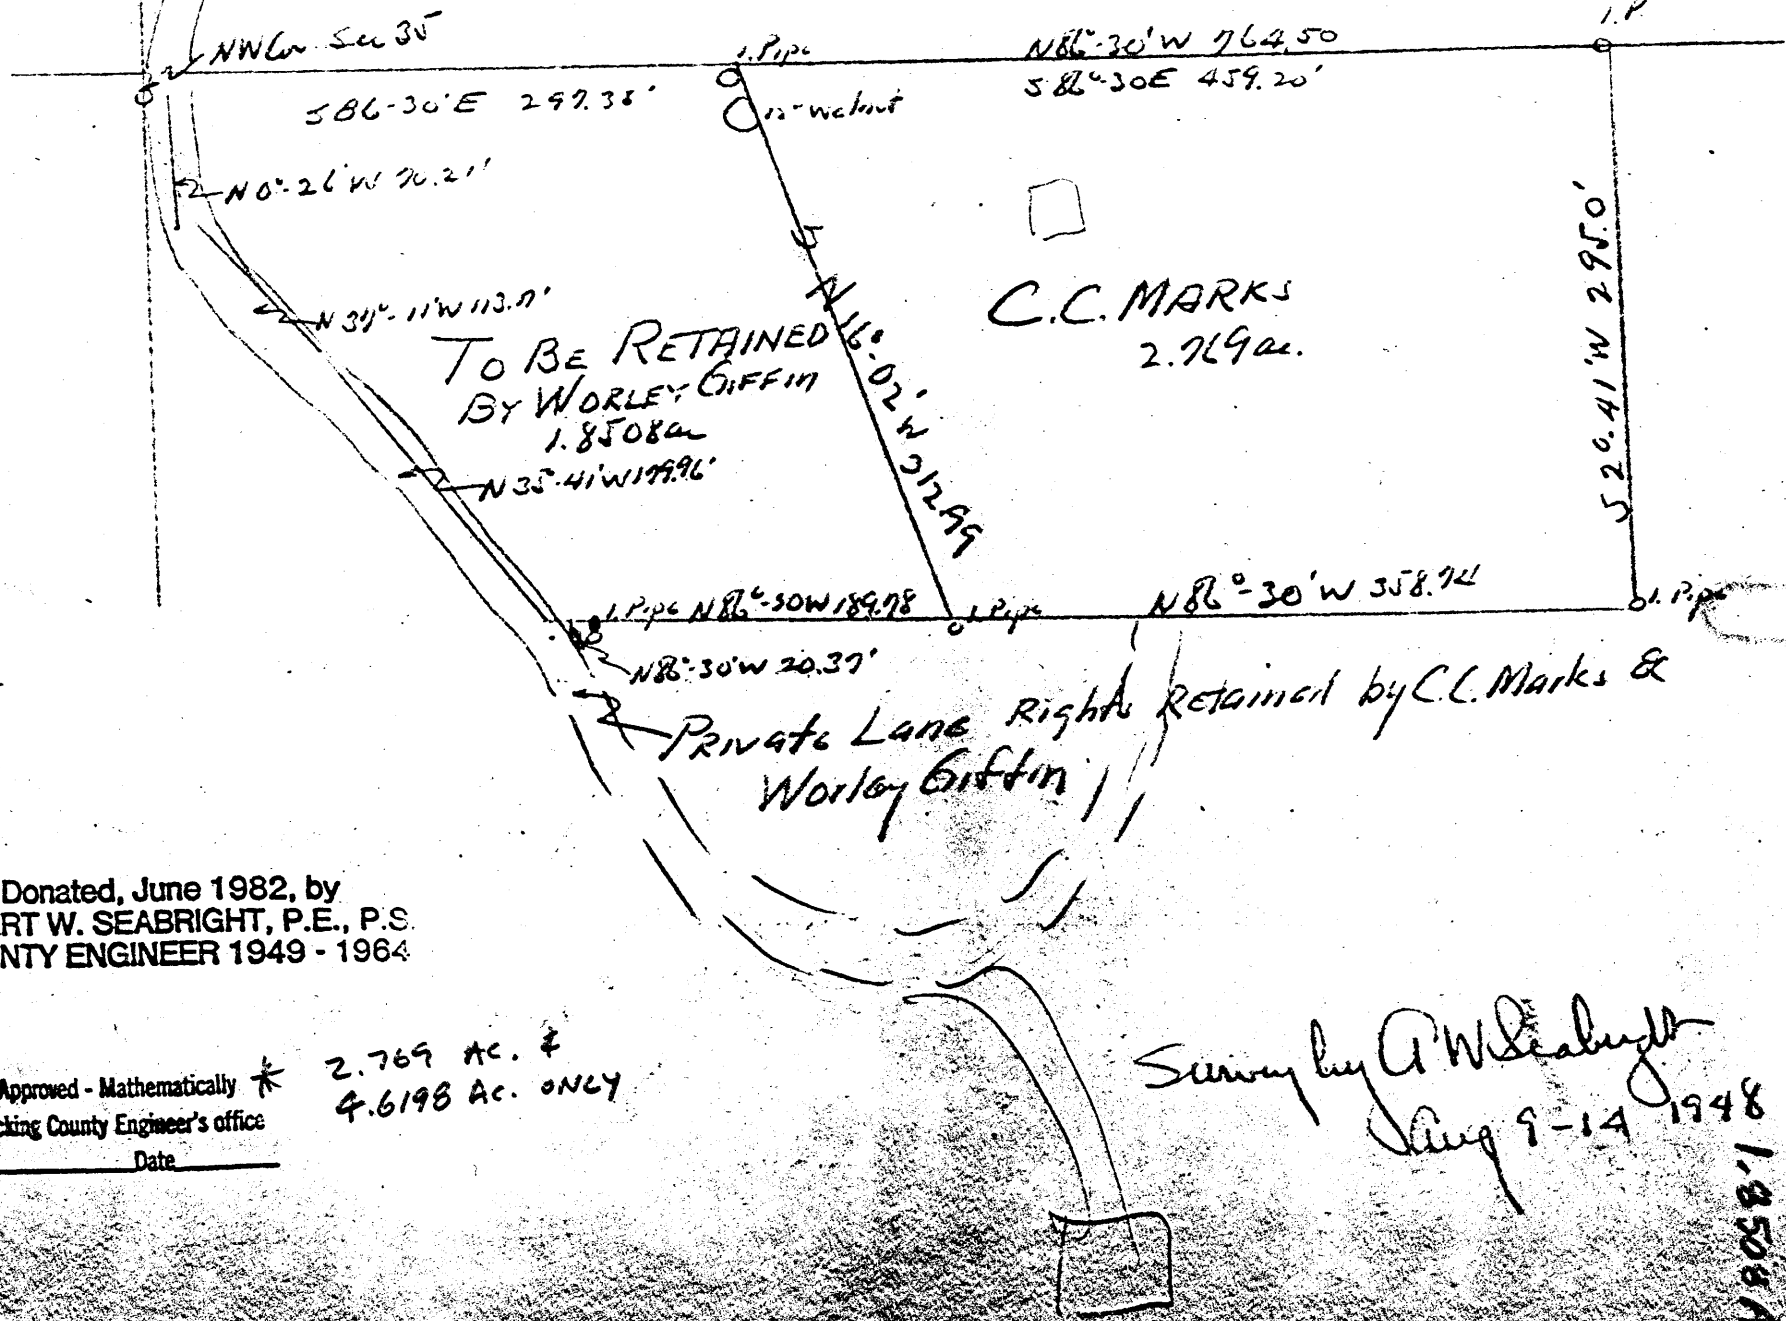 I.P
NW Cor Sec 35
I. Pipe
N86°-30'W 764.50
S86-30'E 297.38'
S 86°-30E 459.20'
12" Walnut
N0°-26'W 70.21'
N 37°-11'W 113.7'
TO BE RETAINED
BY WORLEY GIFFIN
1.8508ac
N35-41'W 179.96'
N 16°-02'W 312.99
C.C. MARKS
2.769 ac.
S 2°-41'W 295.0'
I. Pipe N86°-30W 189.78
I. Pipe
N86°-30'W 358.74
I. Pipe
N86°-30'W 20.37'
Private Lane Rights Retained by C.C. Marks &
Worley Giffin
Donated, June 1982, by
RT W. SEABRIGHT, P.E., P.S.
NTY ENGINEER 1949 - 1964
Approved - Mathematically * 2.769 AC. &
cking County Engineer's office 4.6198 AC. ONLY
Date
Survey by A W Seabright
Aug 9-14 1948
1.8508 A